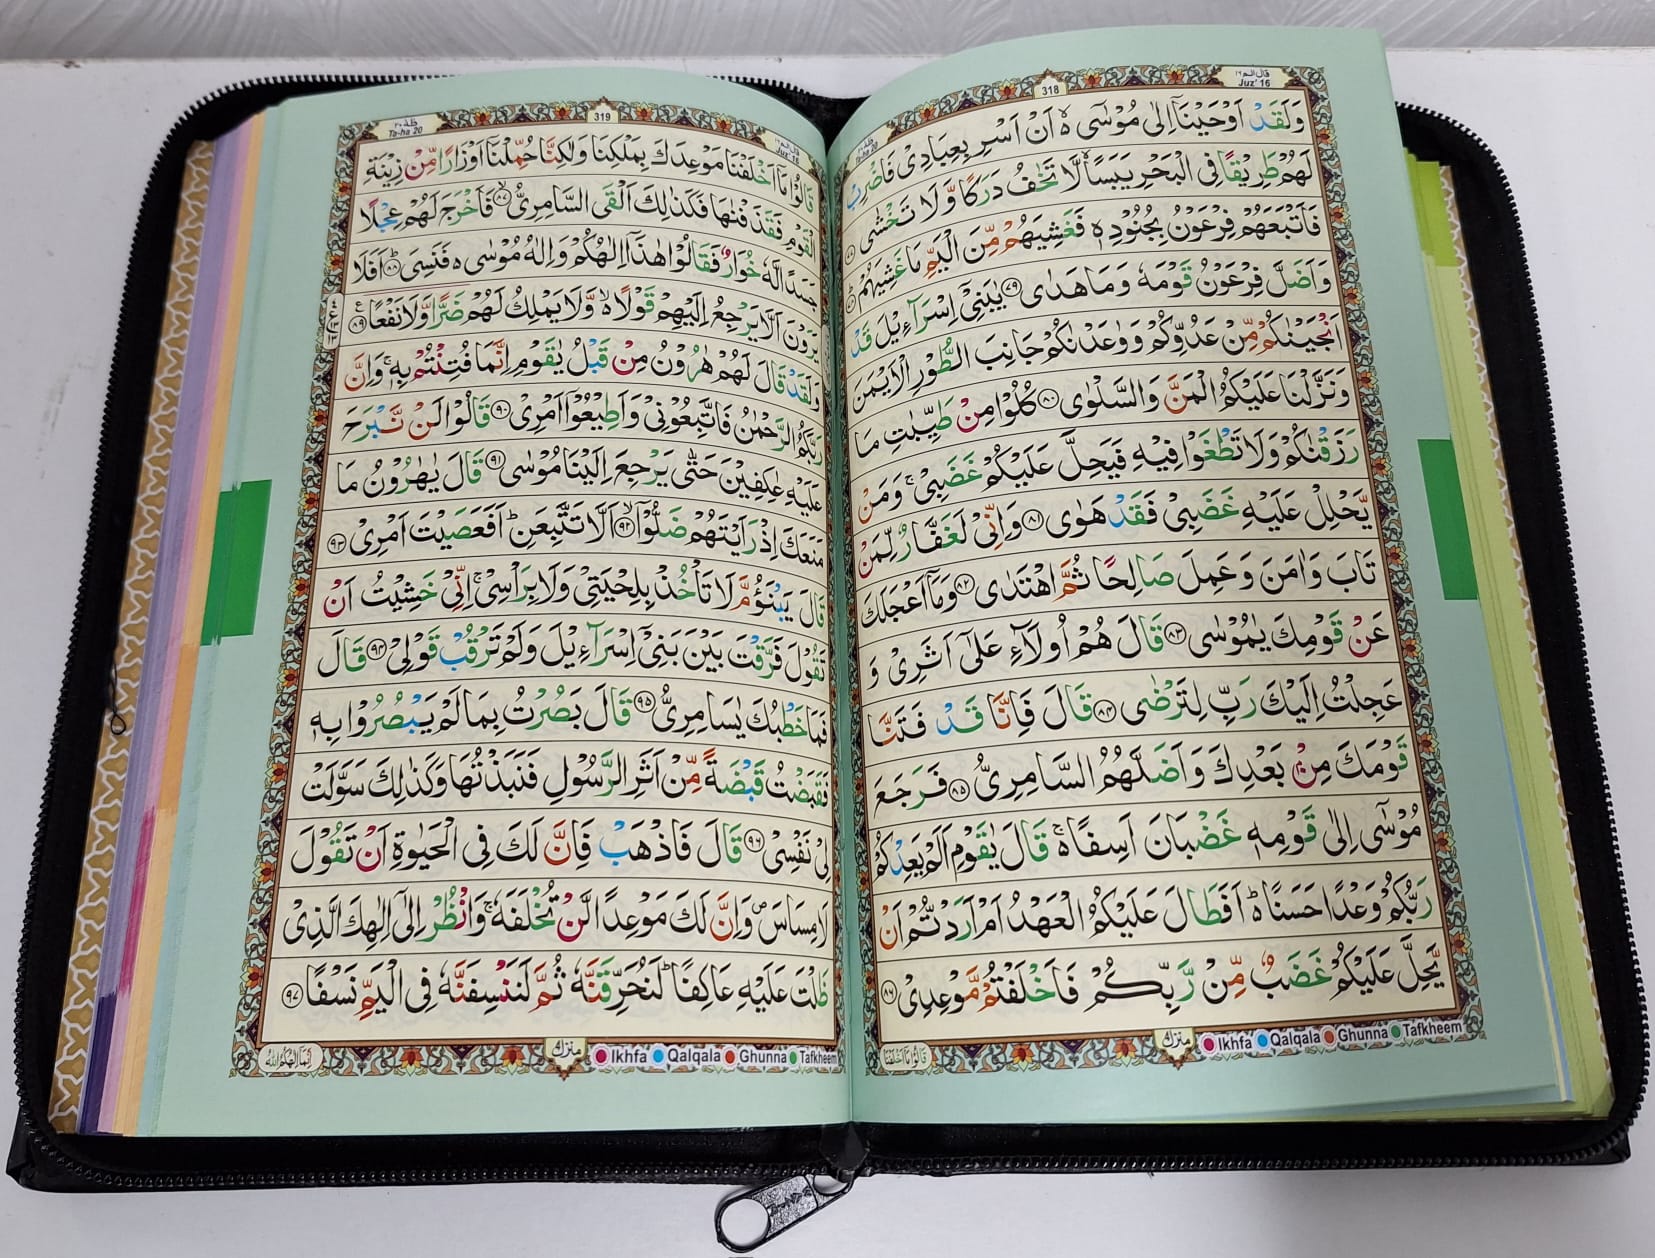 قال الم ١٦
Juz' 16
318
طٰهٰ ٢٠
Ta-ha 20
وَلَقَدْ اَوْحَيْنَاۤ اِلٰى مُوْسٰٓى ۙ اَنْ اَسْرِ بِعِبَادِىْ فَاضْرِبْ
لَهُمْ طَرِيْقًا فِى الْبَحْرِ يَبَسًا ۙ لَّا تَخٰفُ دَرَكًا وَّ لَا تَخْشٰى ﴿۷۷﴾
فَاَتْبَعَهُمْ فِرْعَوْنُ بِجُنُوْدِهٖ فَغَشِيَهُمْ مِّنَ الْيَمِّ مَا غَشِيَهُمْ ﴿۷۸﴾
وَ اَضَلَّ فِرْعَوْنُ قَوْمَهٗ وَ مَا هَدٰى ﴿۷۹﴾ يٰبَنِىْۤ اِسْرَآءِيْلَ قَدْ
اَنْجَيْنٰكُمْ مِّنْ عَدُوِّكُمْ وَ وٰعَدْنٰكُمْ جَانِبَ الطُّوْرِ الْاَيْمَنَ
وَ نَزَّلْنَا عَلَيْكُمُ الْمَنَّ وَ السَّلْوٰى ﴿۸۰﴾ كُلُوْا مِنْ طَيِّبٰتِ مَا
رَزَقْنٰكُمْ وَ لَا تَطْغَوْا فِيْهِ فَيَحِلَّ عَلَيْكُمْ غَضَبِىْ ۚ وَ مَنْ
يَّحْلِلْ عَلَيْهِ غَضَبِىْ فَقَدْ هَوٰى ﴿۸۱﴾ وَ اِنِّىْ لَغَفَّارٌ لِّمَنْ
تَابَ وَ اٰمَنَ وَ عَمِلَ صَالِحًا ثُمَّ اهْتَدٰى ﴿۸۲﴾ وَ مَاۤ اَعْجَلَكَ
عَنْ قَوْمِكَ يٰمُوْسٰى ﴿۸۳﴾ قَالَ هُمْ اُولَآءِ عَلٰٓى اَثَرِىْ وَ
عَجِلْتُ اِلَيْكَ رَبِّ لِتَرْضٰى ﴿۸۴﴾ قَالَ فَاِنَّا قَدْ فَتَنَّا
قَوْمَكَ مِنْۢ بَعْدِكَ وَ اَضَلَّهُمُ السَّامِرِىُّ ﴿۸۵﴾ فَرَجَعَ
مُوْسٰٓى اِلٰى قَوْمِهٖ غَضْبَانَ اَسِفًا ۚ قَالَ يٰقَوْمِ اَلَمْ يَعِدْكُمْ
رَبُّكُمْ وَعْدًا حَسَنًا ۬ؕ اَفَطَالَ عَلَيْكُمُ الْعَهْدُ اَمْ اَرَدْتُّمْ اَنْ
يَّحِلَّ عَلَيْكُمْ غَضَبٌ مِّنْ رَّبِّكُمْ فَاَخْلَفْتُمْ مَّوْعِدِىْ ﴿۸۶﴾
منزل
Ikhfa Qalqala Ghunna Tafkheem
قَالُوْا مَاۤ اَخْلَفْنَا
قال الم ١٦
Juz' 16
319
طٰهٰ ٢٠
Ta-ha 20
قَالُوْا مَاۤ اَخْلَفْنَا مَوْعِدَكَ بِمَلْكِنَا وَ لٰكِنَّا حُمِّلْنَاۤ اَوْزَارًا مِّنْ زِيْنَةِ
الْقَوْمِ فَقَذَفْنٰهَا فَكَذٰلِكَ اَلْقَى السَّامِرِىُّ ﴿۸۷﴾ۙ فَاَخْرَجَ لَهُمْ عِجْلًا
جَسَدًا لَّهٗ خُوَارٌ فَقَالُوْا هٰذَاۤ اِلٰهُكُمْ وَ اِلٰهُ مُوْسٰى ۬ فَنَسِىَ ﴿۸۸﴾ؕ اَفَلَا
يَرَوْنَ اَلَّا يَرْجِعُ اِلَيْهِمْ قَوْلًا ۙ وَّ لَا يَمْلِكُ لَهُمْ ضَرًّا وَّ لَا نَفْعًا ﴿۸۹﴾ ع
وَ لَقَدْ قَالَ لَهُمْ هٰرُوْنُ مِنْ قَبْلُ يٰقَوْمِ اِنَّمَا فُتِنْتُمْ بِهٖ ۚ وَ اِنَّ
رَبَّكُمُ الرَّحْمٰنُ فَاتَّبِعُوْنِىْ وَ اَطِيْعُوْۤا اَمْرِىْ ﴿۹۰﴾ قَالُوْا لَنْ نَّبْرَحَ
عَلَيْهِ عٰكِفِيْنَ حَتّٰى يَرْجِعَ اِلَيْنَا مُوْسٰى ﴿۹۱﴾ قَالَ يٰهٰرُوْنُ مَا
مَنَعَكَ اِذْ رَاَيْتَهُمْ ضَلُّوْۤا ﴿۹۲﴾ۙ اَلَّا تَتَّبِعَنِ ؕ اَفَعَصَيْتَ اَمْرِىْ ﴿۹۳﴾
قَالَ يَبْنَؤُمَّ لَا تَاْخُذْ بِلِحْيَتِىْ وَ لَا بِرَاْسِىْ ۚ اِنِّىْ خَشِيْتُ اَنْ
تَقُوْلَ فَرَّقْتَ بَيْنَ بَنِىْۤ اِسْرَآءِيْلَ وَ لَمْ تَرْقُبْ قَوْلِىْ ﴿۹۴﴾ قَالَ
فَمَا خَطْبُكَ يٰسَامِرِىُّ ﴿۹۵﴾ قَالَ بَصُرْتُ بِمَا لَمْ يَبْصُرُوْا بِهٖ
فَقَبَضْتُ قَبْضَةً مِّنْ اَثَرِ الرَّسُوْلِ فَنَبَذْتُهَا وَ كَذٰلِكَ سَوَّلَتْ
لِىْ نَفْسِىْ ﴿۹۶﴾ قَالَ فَاذْهَبْ فَاِنَّ لَكَ فِى الْحَيٰوةِ اَنْ تَقُوْلَ
لَا مِسَاسَ ۪ وَ اِنَّ لَكَ مَوْعِدًا لَّنْ تُخْلَفَهٗ ۚ وَ انْظُرْ اِلٰٓى اِلٰهِكَ الَّذِىْ
ظَلْتَ عَلَيْهِ عَاكِفًا ؕ لَنُحَرِّقَنَّهٗ ثُمَّ لَنَنْسِفَنَّهٗ فِى الْيَمِّ نَسْفًا ﴿۹۷﴾
منزل
Ikhfa Qalqala Ghunna Tafkheem
اِنَّمَاۤ اِلٰهُكُمُ اللّٰهُ